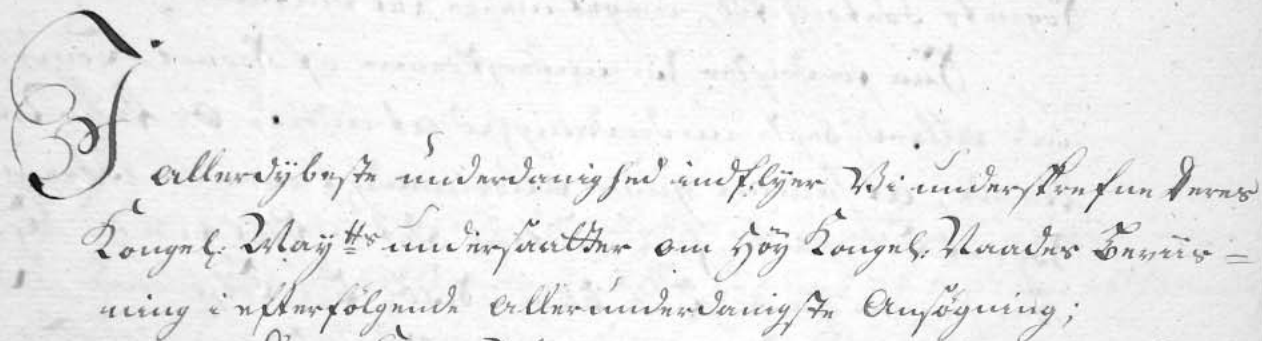 I allerdybeste underdanighed indflyer Vi underskrefne Deres
Kongel: May:tts undersaatter om Høy Kongel: Naades Beviis=
ning i efterfølgende allerunderdanigste Ansøgning;